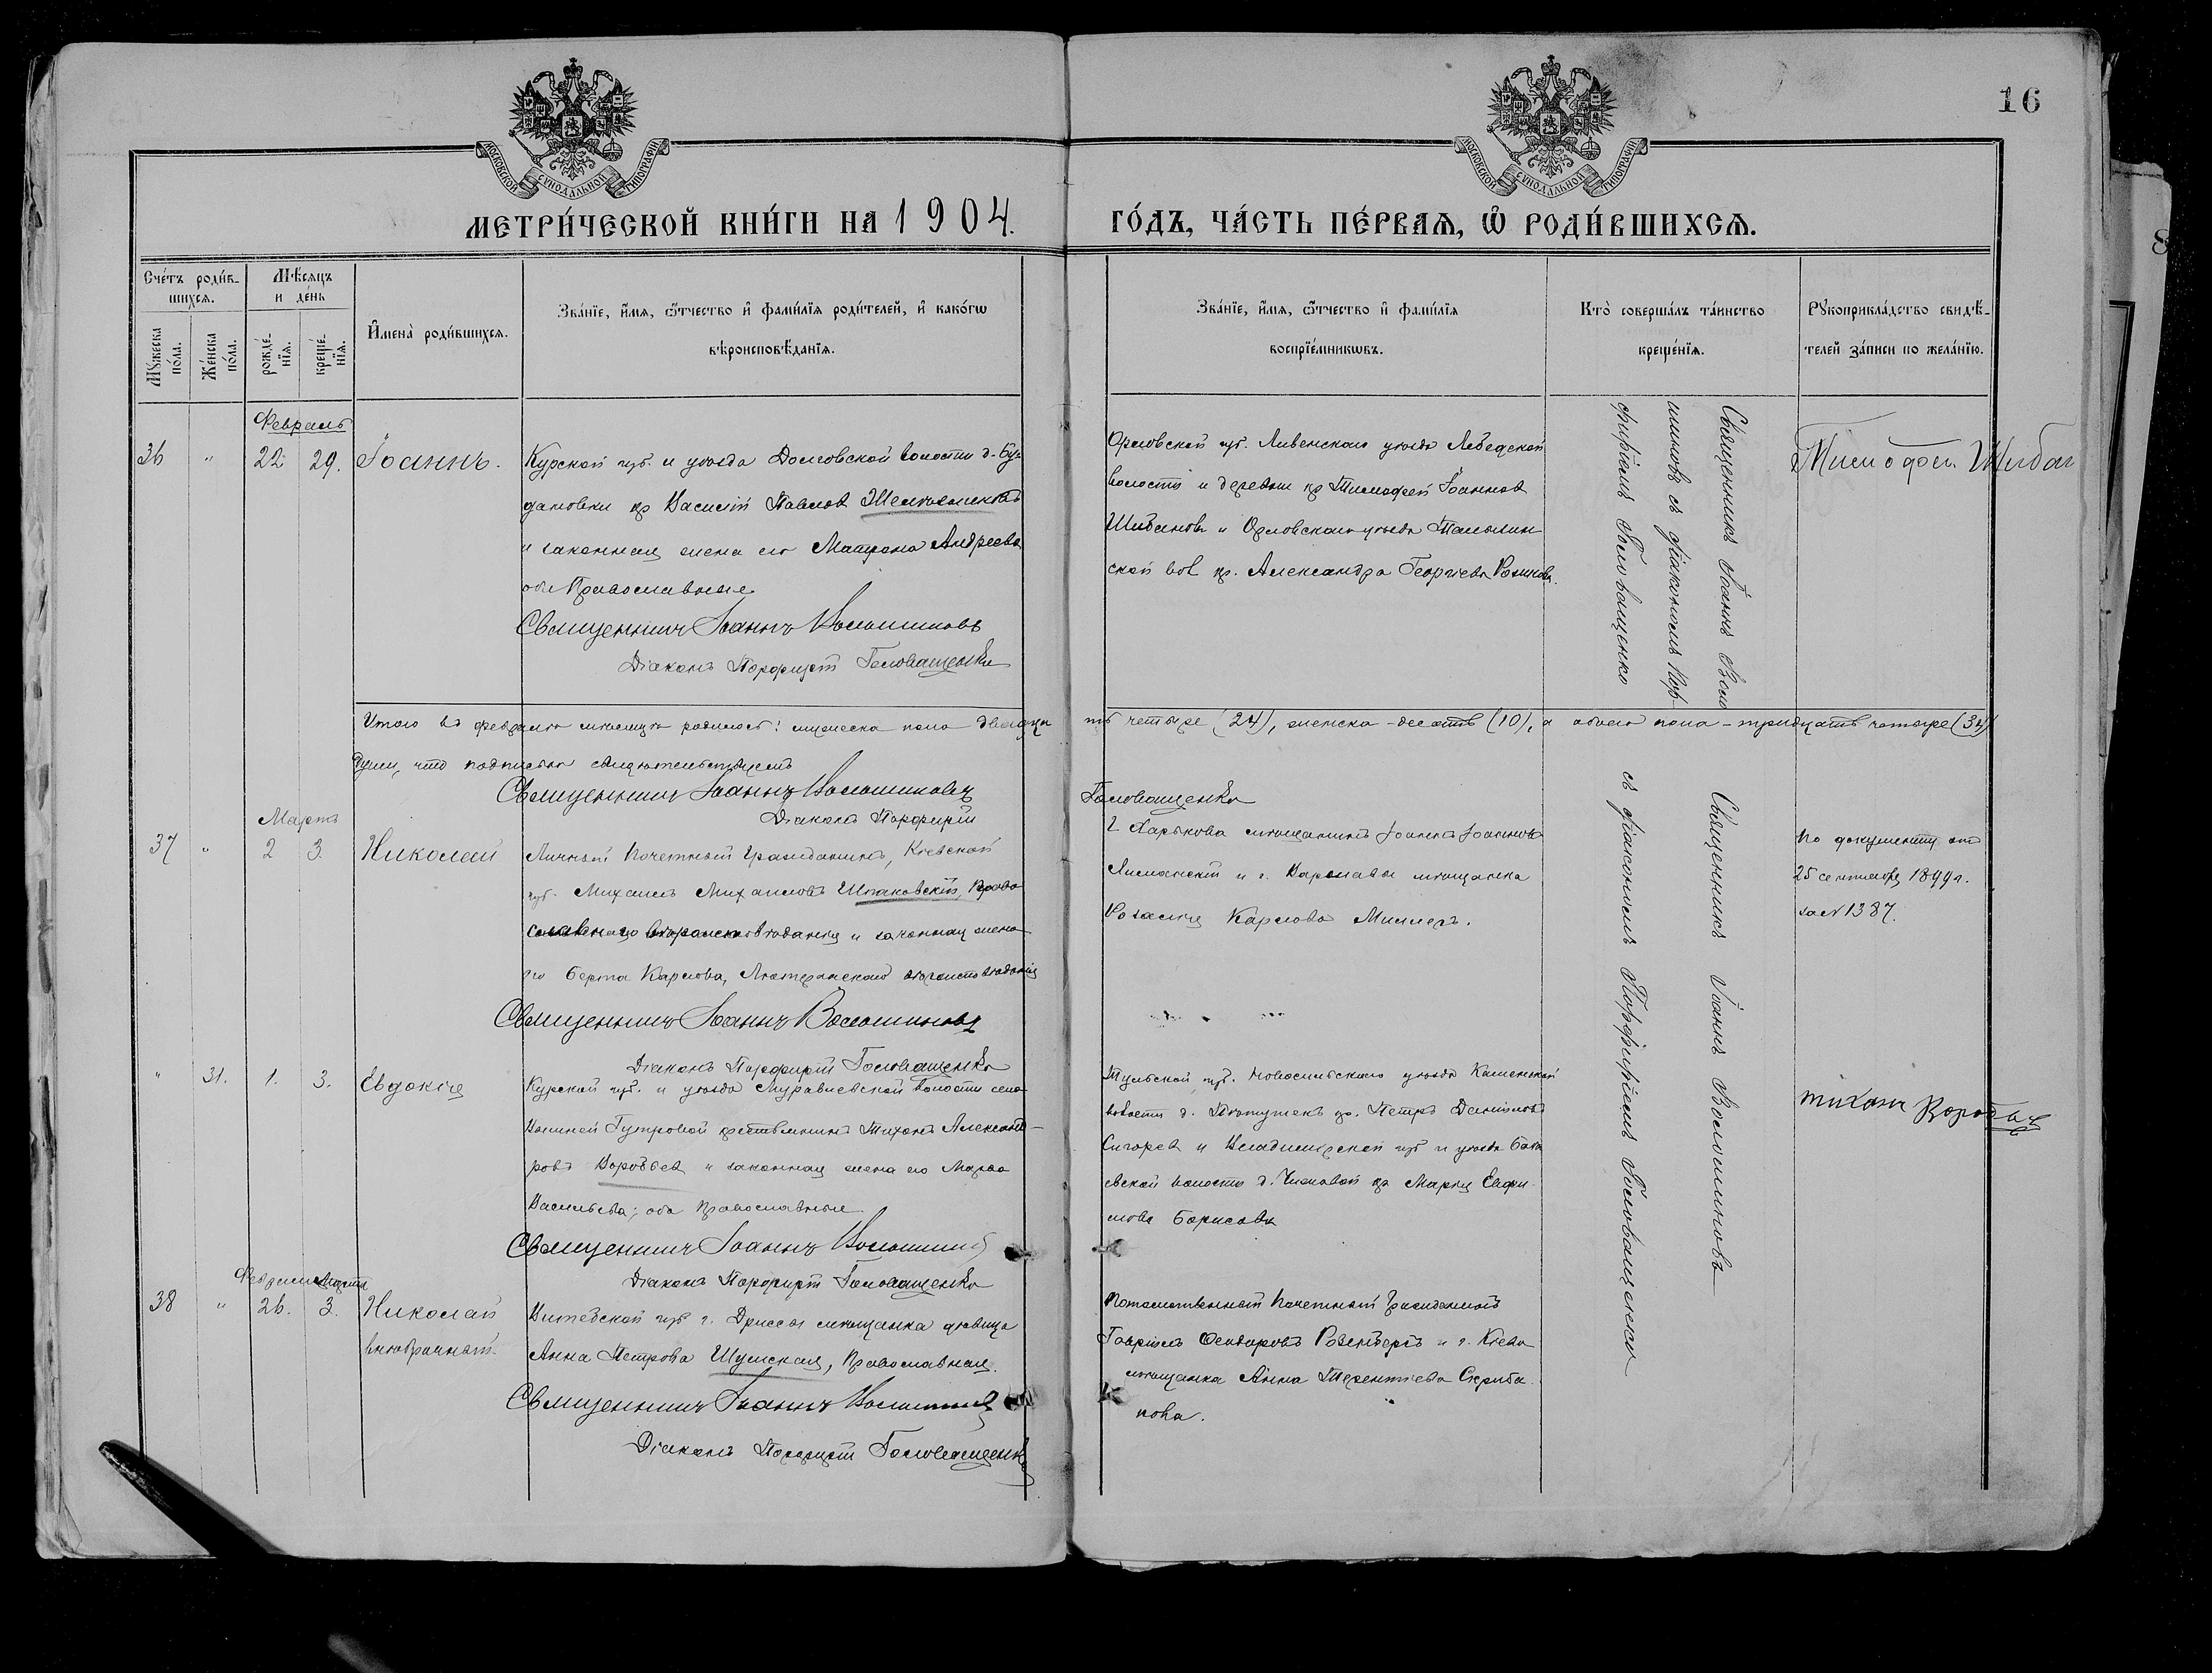 16
МОСКОВСКОЙ СѴНОДАЛЬНОЙ ТИПОГРАФІИ
МОСКОВСКОЙ СѴНОДАЛЬНОЙ ТИПОГРАФІИ
МЕТРИ́ЧЕСКОЙ КНИ́ГИ НА 1904.
ГО́ДЪ, ЧА́СТЬ ПЕ́РВАѦ, Ѡ҆ РОДИ́ВШИХСѦ.
Сче́тъ роди́в-
шихсѧ.
Мꙋжеска
по́ла.
Же́нска
по́ла.
Мѣ́сѧцъ
и де́нь
рожде́-
нїѧ.
креще́-
нїѧ.
И҆мена̀ роди́вшихсѧ.
Зва́нїе, и҆́мѧ, ѻ҆́тчество и҆ фами́лїѧ роди́телей, и҆ како́гѡ
вѣроисповѣ́данїѧ.
Зва́нїе, и҆́мѧ, ѻ҆́тчество и҆ фами́лїѧ
воспрїе́мникѡвъ.
Кто̀ соверша́лъ та́инство
креще́нїѧ.
Рꙋкоприкла́дство свидѣ́-
телей за́писи по жела́нїю.
Февраль
36 " 22 29. Іоаннъ.
Курской губ. и уѣзда Долговской волости д. Бу-
дановки кр Василій Павлов
и законная жена его Матрона Андреева
оба Православные
Священникъ Іоаннъ Волошиновъ
Діаконъ Порфирій Головащенко
Орловской губ. Ливенскаго уѣзда Лебедской
волости и деревни кр Тимофей Іоаннов
Шибанов и Орловскаго уѣзда
ской вол кр. Александра Георгіева
Священникъ Іоаннъ Воло
шиновъ съ діакономъ Пор
фиріемъ Головащенко
Тимофей Шибан
Итого въ февралѣ мѣсяцѣ родилось: мужеска пола двадца
ть четыре (24), женска - десять (10), а обоего пола - тридцать четыре (34)
души, что подписью свидѣтельствуемъ
Священникъ Іоаннъ Волошиновъ
Діаконъ Порфирій
Головащенко
Мартъ
37 " 2 3. Николай
Личный Почетный Гражданинъ, Кіевской
губ. Михаилъ Михаиловъ Шпаковскій, Право
славнаго вѣроисповѣданія и законная жена
его Берта Карлова, Лютеранскаго вѣроисповѣданія
Священникъ Іоаннъ Волошиновъ
Діаконъ Порфирій Головащенко
г Харькова мѣщанинъ Іоаннъ Іоаннов
Лисманскій и г. Варшавы мѣщанка
Розалія Карлова Миллеръ.
По документу отъ
25 сентября 1899 г.
за № 1387.
" 31. 1. 3. Евдокія
Курской губ. и уѣзда Муравлевской волости села
тихонъ Александ-
ров Воробьев и законная жена его Марѳа
Васильева; оба православные
Священникъ Іоаннъ Волошинов
Діаконъ Порфирій Головащенко
Тульской губ. Новосильскаго уѣзда Каменской
волости д. кр. Петръ Даніиловъ
Сигорев и Владимірской губ и уѣзда
евской волости д. кр Марія Евфи-
мова Борисова
Тихонъ Воробьев
Февраль Марта
38 " 26. 3. Николай
внѣбрачный
Витебской губ г. Дриссы мѣщанка дѣвица
Анна Петрова Шумская, православная.
Священникъ Іоаннъ Волошинов
Діаконъ Порфирій Головащенко
Потомственный Почетный Гражданинъ
Гавріилъ Ѳеодоровъ Розенбергъ и г. Кіева
мѣщанка Анна Терентіева Скриба
нова.
Священникъ Іоаннъ Волошиновъ
съ діакономъ Порфиріемъ Головащенко